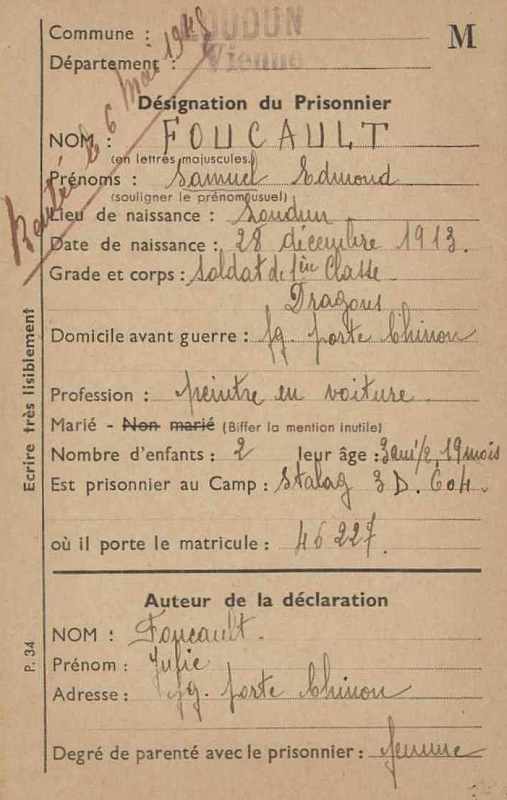 Commune : LOUDUN
M
Département : Vienne
Rentré le 6 Mai 1945
Désignation du Prisonnier
NOM : FOUCAULT
(en lettres majuscules.)
Prénoms : Samuel Edmond
(souligner le prénom usuel)
Lieu de naissance : Loudun
Date de naissance : 28 décembre 1913.
Grade et corps : Soldat de 1ère Classe
Dragons
Domicile avant guerre : fg. porte Chinon
Profession : peintre en voiture.
Marié - Non marié (Biffer la mention inutile)
Nombre d'enfants : 2 leur âge : 3 ans 1/2, 19 mois
Est prisonnier au Camp : Stalag 3 D. 604.
où il porte le matricule : 46227.
Auteur de la déclaration
NOM : Foucault.
Prénom : Julie
Adresse : fg. porte Chinon
Degré de parenté avec le prisonnier : femme
Ecrire très lisiblement
P. 34